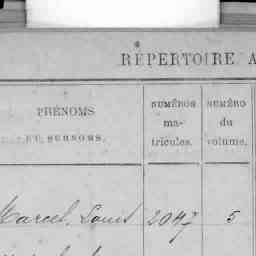 RÉPERTOIRE A
PRÉNOMS
ET SURNOMS.
NUMÉROS
ma-
tricules.
NUMÉRO
du
volume.
Marcel, Louis 2047 5